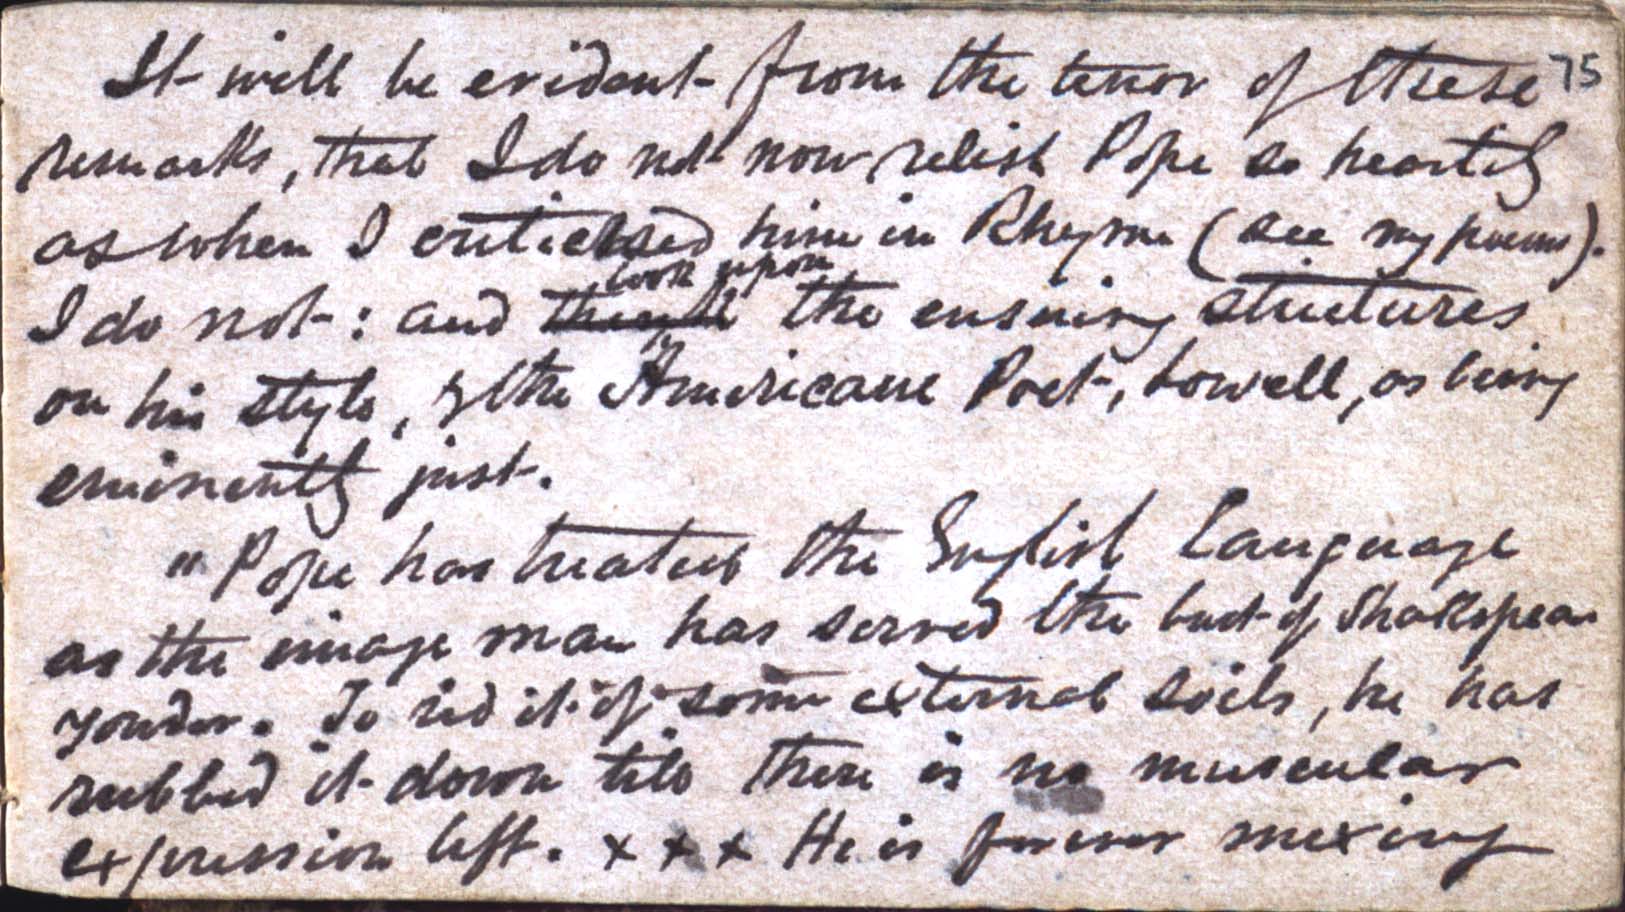 It will be evident from the tenor of these 75
remarks, that I do not now relish Pope so heartily
as when I criticised him in Rhyme (see my poems).
look upon
I do not: and the ensuing strictures
on his style, by the American Poet, Lowell, as being
eminently just.
"Pope has treated the English Language
as the image man has served the bust of Shakspear
yonder. To rid it of some external soils, he has
rubbed it down till there is no muscular
expression left. x x x He is forever mixing